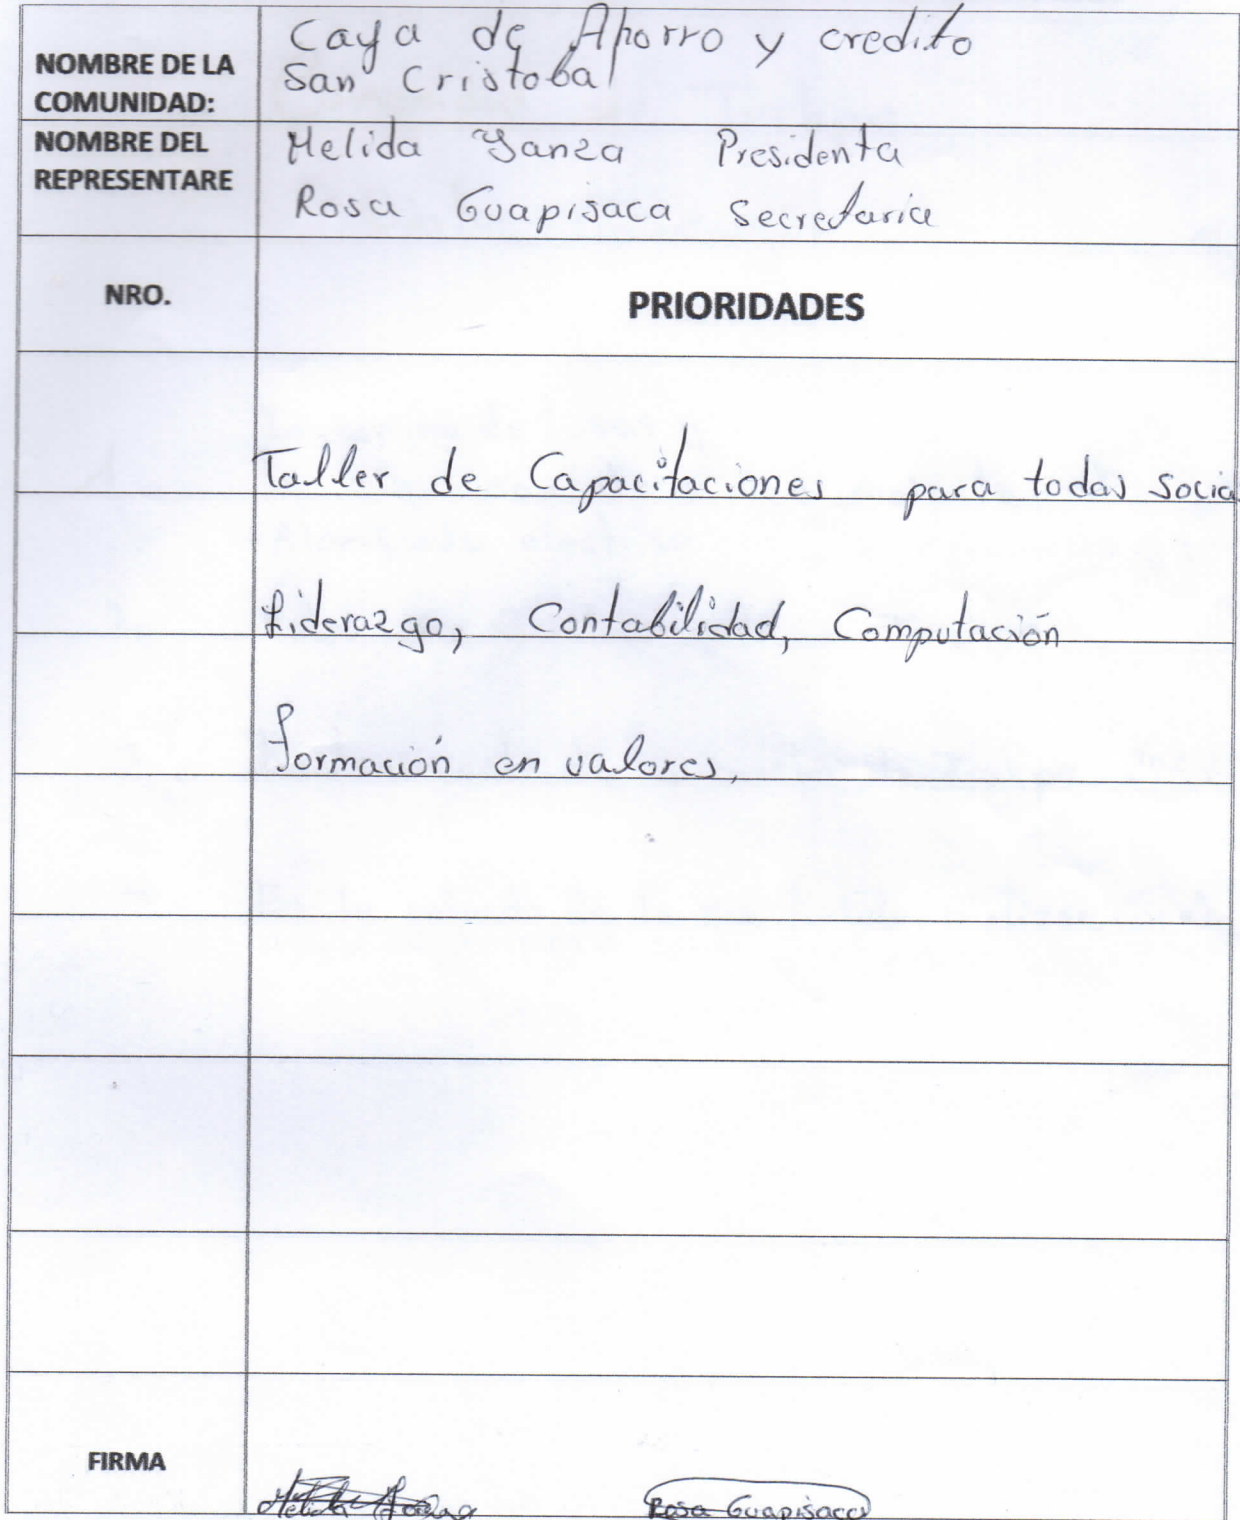 NOMBRE DE LA COMUNIDAD:
Caja de Ahorro y credito
San Cristobal
NOMBRE DEL REPRESENTARE
Melida Yanza Presidenta
Rosa Guapisaca Secretaria
NRO.
PRIORIDADES
Taller de Capacitaciones para todas socia
Liderazgo, Contabilidad, Computación
formación en valores,
FIRMA
Melida
Rosa Guapisaca